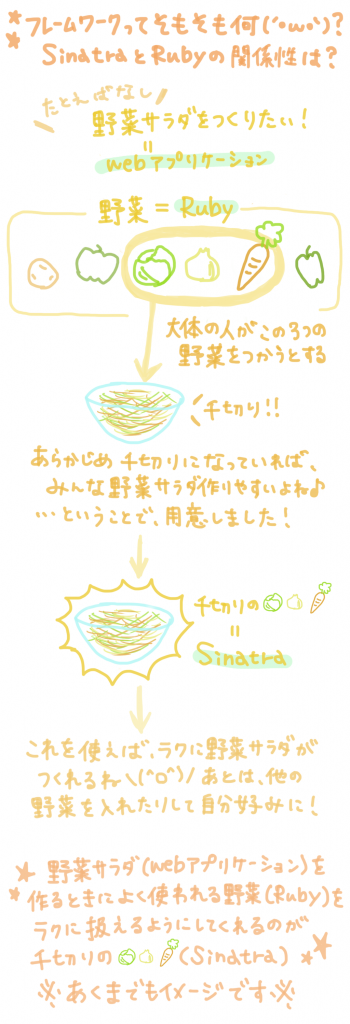 フレームワークってそもそも何(´・ω・`)?
SinatraとRubyの関係性は?
たとえばなし
野菜サラダをつくりたい!
=
webアプリケーション
野菜 = Ruby
大体の人がこの3つの
野菜をつかうとする
千切り!!
あらかじめ千切りになっていれば、
みんな野菜サラダ作りやすいよね♪
…ということで、用意しました!
千切りの
=
Sinatra
これを使えば、ラクに野菜サラダが
つくれるね\(^o^)/あとは、他の
野菜を入れたりして自分好みに!
野菜サラダ(webアプリケーション)を
作るときによく使われる野菜(Ruby)を
ラクに扱えるようにしてくれるのが
千切りの(Sinatra)
※あくまでもイメージです※